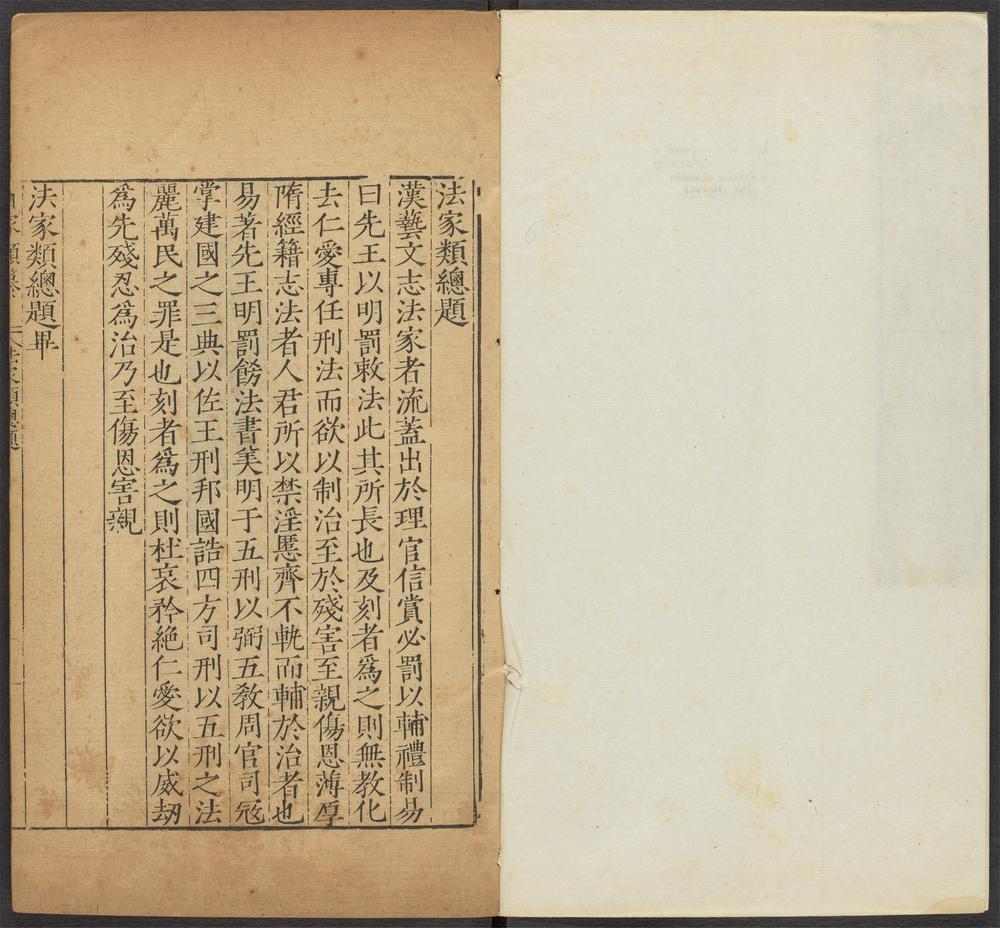 法家類總題
漢藝文志法家者流蓋出於理官信賞必罰以輔禮制易
曰先王以明罰敕法此其所長也及刻者爲之則無教化
去仁愛專任刑法而欲以制治至於殘害至親傷恩薄厚
隋經籍志法者人君所以禁淫慝齊不軌而輔於治者也
易著先王明罰飭法書美明于五刑以弼五敎周官司寇
掌建國之三典以佐王刑邦國詰四方司刑以五刑之法
麗萬民之罪是也刻者爲之則杜哀矜絶仁愛欲以威劫
爲先殘忍爲治乃至傷恩害親
法家類總題畢
法家類總題